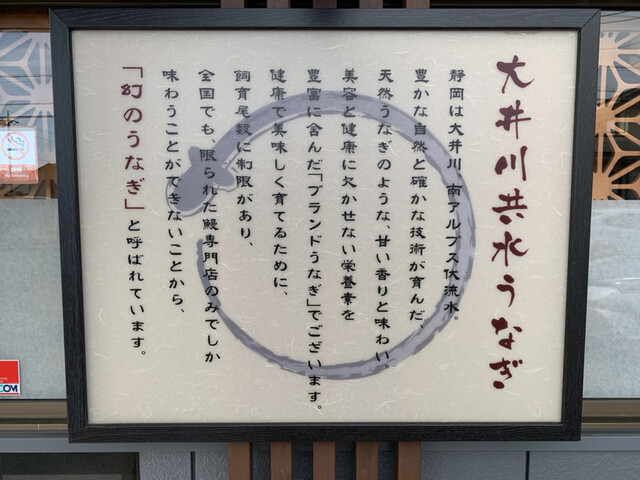 大井川共水うなぎ
静岡は大井川、南アルプス伏流水。
豊かな自然と確かな技術が育んだ
天然うなぎのような、甘い香りと味わい。
美容と健康に欠かせない栄養素を
豊富に含んだ「ブランドうなぎ」でございます。
健康で美味しく育てるために、
飼育尾数に制限があり、
全国でも、限られた鰻専門店のみでしか
味わうことができないことから、
「幻のうなぎ」と呼ばれています。
COM